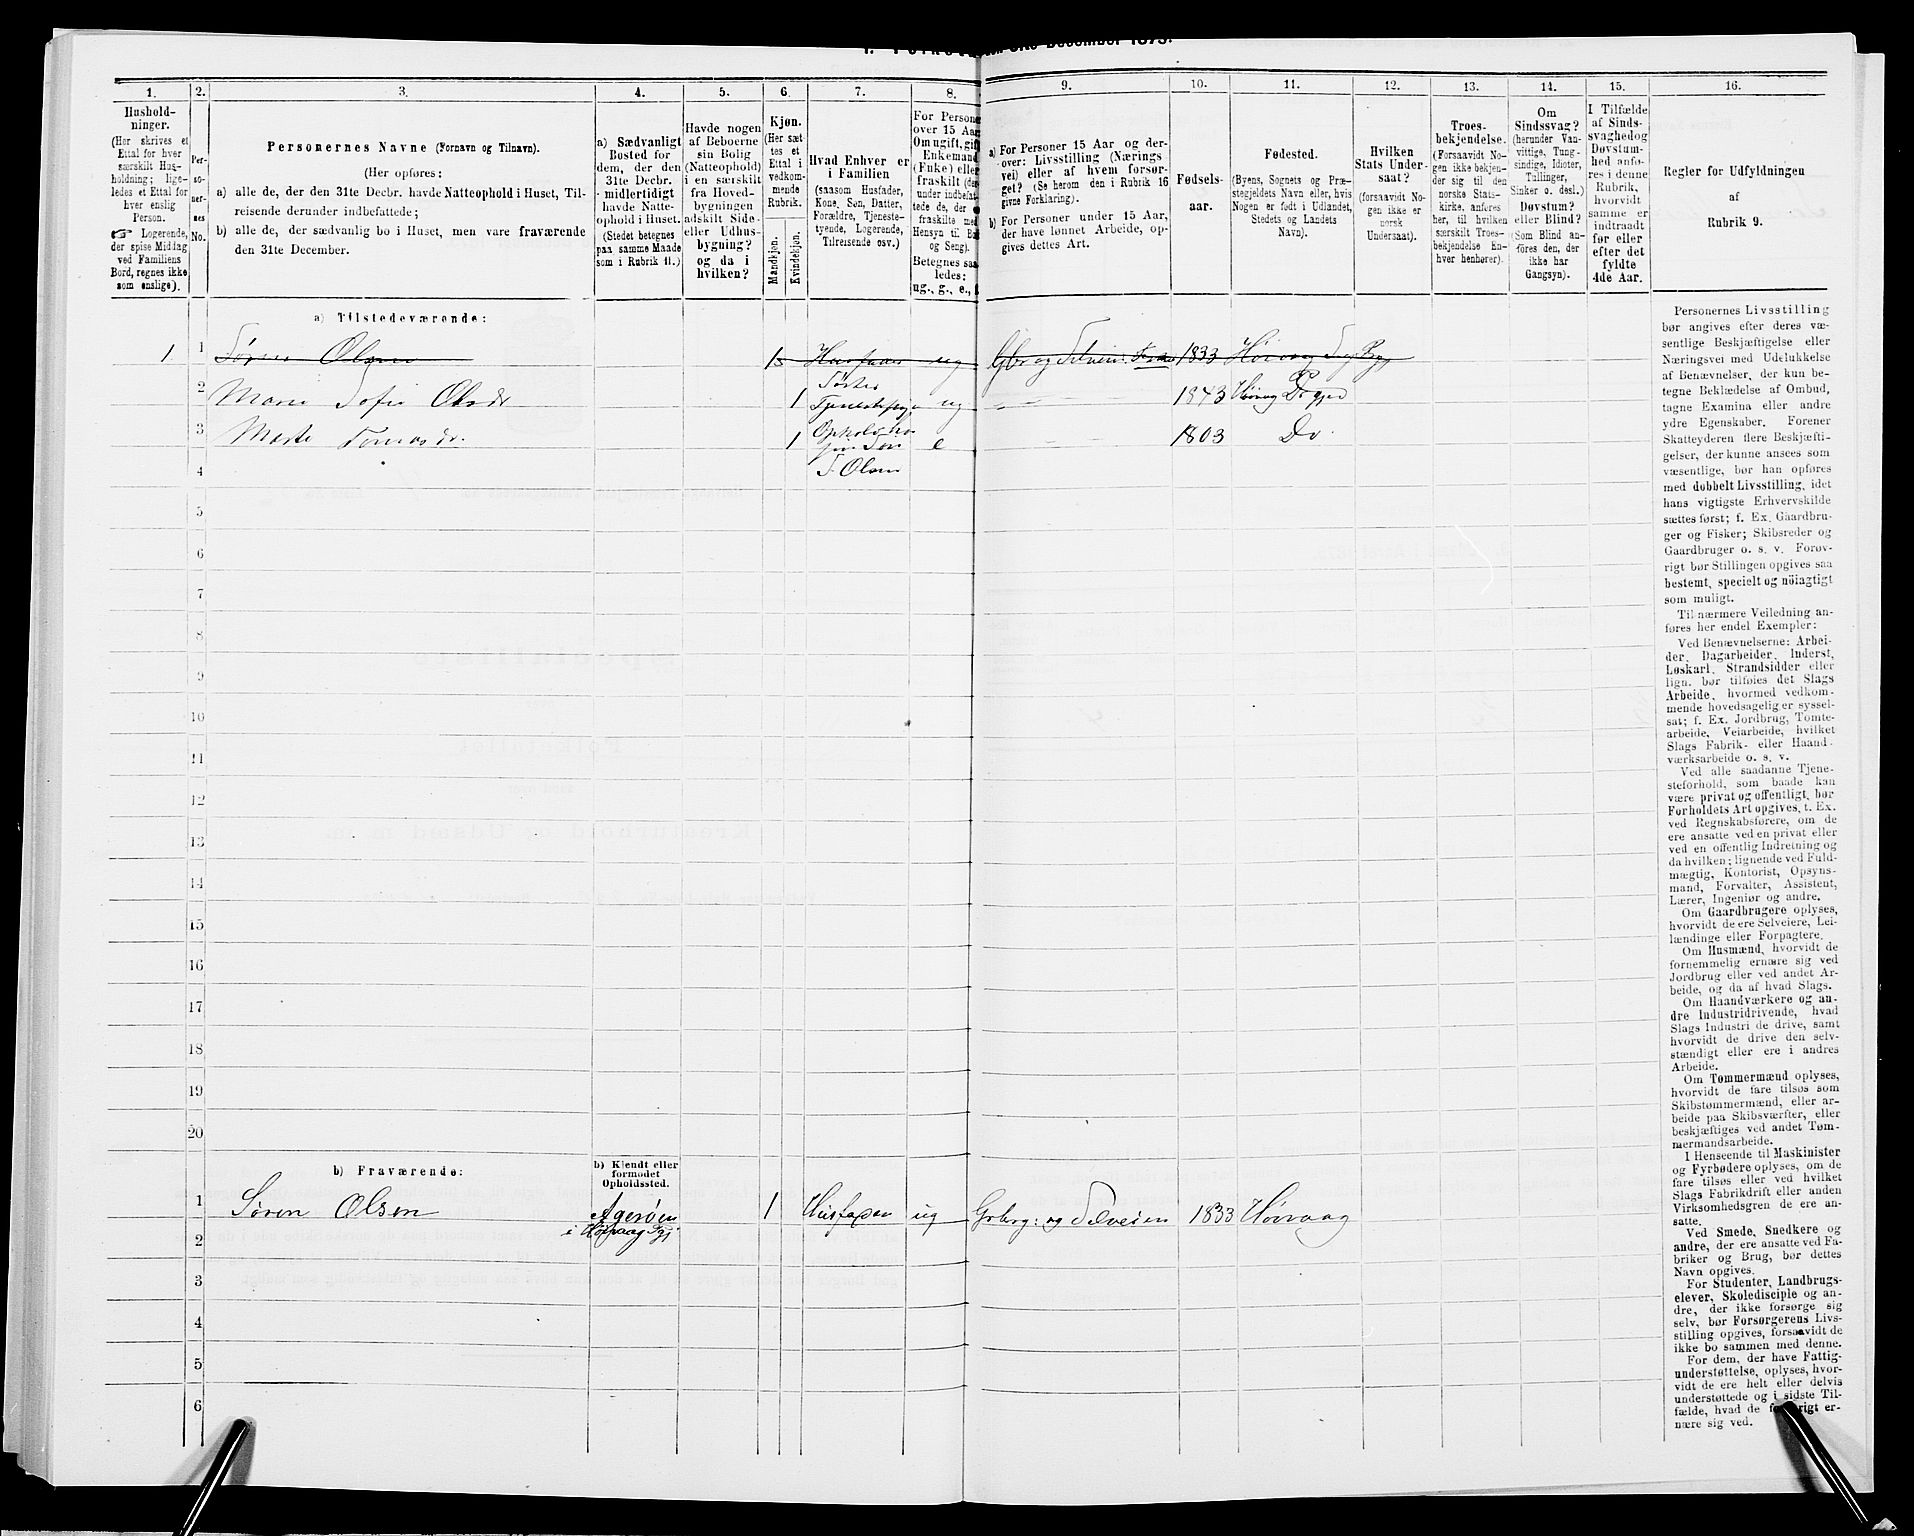 December 1875.
1.
Hushold-
ninger.
(Her skrives et
Ettal for hver
særskilt Hus-
holdning; lige-
ledes et Ettal for
hver enslig
Person.
☞ Logerende,
der spise Middag
ved Familiens
Bord, regnes ikke
som enslige).
2.
Per-
so-
ner-
nes
No.
3.
Personernes Navne (Fornavn og Tilnavn).
(Her opføres:
a) alle de, der den 31te Decbr. havde Natteophold i Huset, Til-
reisende derunder indbefattede;
b) alle de, der sædvanlig bo i Huset, men vare fraværende
den 31te December.
4.
a) Sædvanligt
Bosted for
dem, der den
31te Decbr.
midlertidigt
havde Natte-
ophold i Huset.
(Stedet betegnes
paa samme Maade
som i Rubrik 11.)
5.
Havde nogen
af Beboerne
sin Bolig
(Natteophold)
i en særskilt
fra Hoved-
bygningen
adskilt Side-
eller Udhus-
bygning?
og da i
hvilken?
6.
Kjøn.
(Her sæt-
tes et
Ettal i
vedkom-
mende
Rubrik.
Mandkjøn.
Kvindekjøn.
7.
Hvad Enhver er
i Familien
(saasom Husfader,
Kone, Søn, Datter,
Forældre, Tjeneste-
tyende, Logerende,
Tilreisende osv.)
8.
For Persone
over 15 Aa
Om ugift, gif
Enkemand
(Enke) eller
fraskilt (de
under indbefat
tede de, der e
fraskilte med
Hensyn til Bo
og Seng).
Betegnes saa
ledes:
ug., g., e.,
9.
a) For Personer 15 Aar og der-
over: Livsstilling (Nærings
vei) eller af hvem forsør-
get? (Se herom den i Rubrik 16
givne Forklaring).
b) For Personer under 15 Aar,
der have lønnet Arbeide, op-
gives dettes Art.
10.
Fødsels-
aar.
11.
Fødested.
(Byens, Sognets og Præ-
stegjeldets Navn eller, hvis
Nogen er født i Udlandet,
Stedets og Landets
Navn).
12.
Hvilken
Stats Under-
saat?
(forsaavidt No-
gen ikke er
norsk
Undersaat).
13.
Troes-
bekjendelse.
(Forsaavidt No-
gen ikke bekjen-
der sig til den
norske Stats-
kirke, anføres
her, til hvilken
særskilt Troes-
bekjendelse En-
hver henhører).
14.
Om
Sindssvag?
(herunder Van-
vittige, Tung-
sindige, Idioter,
Tullinger,
Sinker o. desl.)
Døvstum?
eller Blind?
(Som Blind an-
føres den, der
ikke har
Gangsyn).
15.
I Tilfælde
af Sinds-
svaghed og
Døvstum-
hed anfø-
res i denne
Rubrik,
hvorvidt
samme er
indtraadt
før eller
efter det
fyldte
4de Aar.
16.
Regler for Udfyldningen
af
Rubrik 9.
a) Tilstedeværende:
1 1 Søren Olsen 1 Husfader ug Gbr og Selveier 1833 Høivaag
2 Maren Sofie Olsdr 1 Søster Tjenestepige ug 1843 Høivag
3 Marte Tomasdr. 1 e 1803 Do.
S. Olsen
4
5
6
7
8
9
10
11
12
13
14
15
16
17
18
19
20
b) Fraværende:
b) Kjendt eller
formodet
Opholdssted.
1 Søren Olsen Agerøen 1 Husfaxen ug Grbrg: og Selveien 1833 Høivaag
i Høivaag Sgj
2
3
4
5
6
Personernes Livsstilling
bør angives efter deres væ-
sentlige Beskjæftigelse eller
Næringsvei med Udelukkelse
af Benævnelser, der kun be-
tegne Beklædelse af Ombud,
tagne Examina eller andre
ydre Egenskaber. Forener
Skatteyderen flere Beskjæfti-
gelser, der kunne ansees som
væsentlige, bør han opføres
med dobbelt Livsstilling, idet
hans vigtigste Erhvervskilde
sættes først; f. Ex. Gaardbru-
ger og Fisker; Skibsreder og
Gaardbruger o. s. v. Forøv-
rigt bør Stillingen opgives saa
bestemt, specielt og nöiagtigt
som muligt.
Til nærmere Veiledning an-
føres her endel Exempler:
Ved Benævnelserne: Arbei-
der, Dagarbeider, Inderst,
Løskarl, Strandsidder eller
lign. bør tilføies det Slags
Arbeide, hvormed vedkom-
mende hovedsagelig er syssel-
sat; f. Ex. Jordbrug, Tomte-
arbeide, Veiarbeide, hvilket
Slags Fabrik- eller Haand-
værksarbeide o. s. v.
Ved alle saadanne Tjene-
steforhold, som baade kan
være privat og offentligt, bør
Forholdets Art opgives, t. Ex.
ved Regnskabsførere, om de
ere ansatte ved en privat eller
ved en offentlig Indretning og
da hvilken; lignende ved Fuld-
mægtig, Kontorist, Opsyns-
mand, Forvalter, Assistent,
Lærer, Ingeniør og andre.
Om Gaardbrugere oplyses,
hvorvidt de ere Selveiere, Lei-
lændinge eller Forpagtere.
Om Husmænd, hvorvidt de
fornemmelig ernære sig ved
Jordbrug eller ved andet Ar-
beide, og da af hvad Slags.
Om Haandværkere og an-
dre Industridrivende, hvad
Slags Industri de drive, samt
hvorvidt de drive den selv-
stændigt eller ere i andres
Arbeide.
Om Tømmermænd oplyses,
hvorvidt de fare tilsøs som
Skibstømmermænd, eller ar-
beide paa Skibsværfter, eller
beskjæftiges ved andet Tøm-
mermandsarbeide.
I Henseende til Maskinister
og Fyrbødere oplyses, om de
fare tilsøs eller ved hvilket
Slags Fabrikdrift eller anden
Virksomhedsgren de ere an-
satte.
Ved Smede, Snedkere og
andre, der ere ansatte ved Fa-
briker og Brug, bør dettes
Navn opgives.
For Studenter, Landbrugs-
elever, Skoledisciple og an-
dre, der ikke forsørge sig
selv, bør Forsørgerens Livs-
stilling opgives, forsaavidt de
ikke bo sammen med denne.
For dem, der have Fattig-
understøttelse, oplyses, hvor-
vidt de ere helt eller delvis
understøttede og i sidste Til-
fælde, hvad de forøvrigt er-
nære sig ved.